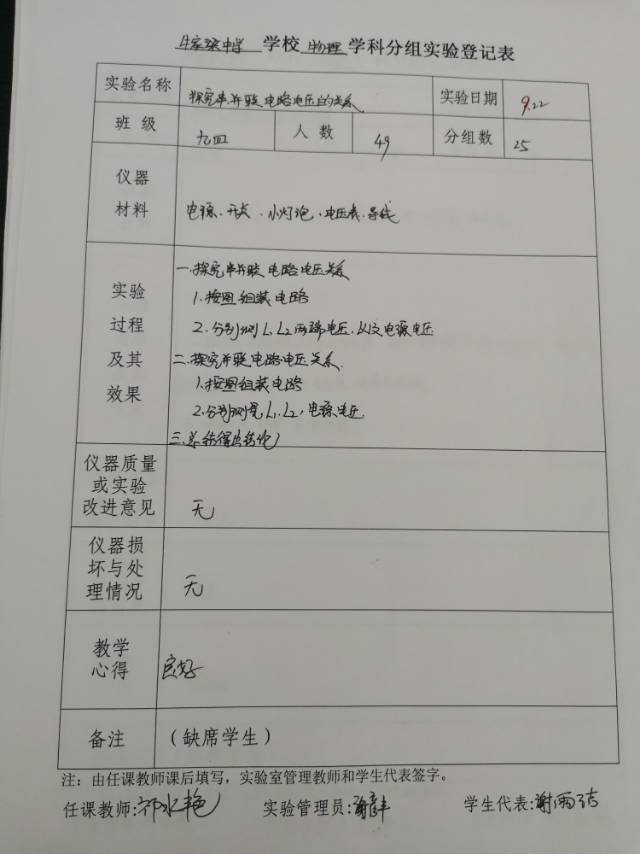 中学 学校 物理 学科分组实验登记表
实验名称 探究串并联电路电压的关系 实验日期 9.22
班级 九四 人数 49 分组数 25
仪器
材料 电源、开关、小灯泡、电压表、导线
实验
过程
及其
效果
一、探究串并联电路电压关系
1.按图组装电路
2.分别测L1、L2两端电压,以及电源电压
二、探究并联电路电压关系
1.按图组装电路
2.分别测量L1、L2,电源电压
三、总结得出结论
仪器质量
或实验
改进意见 无
仪器损
坏与处
理情况 无
教学
心得 良好
备注 (缺席学生)
注:由任课教师课后填写,实验室管理教师和学生代表签字。
任课教师:祁水艳 实验管理员: 学生代表:谢雨洁